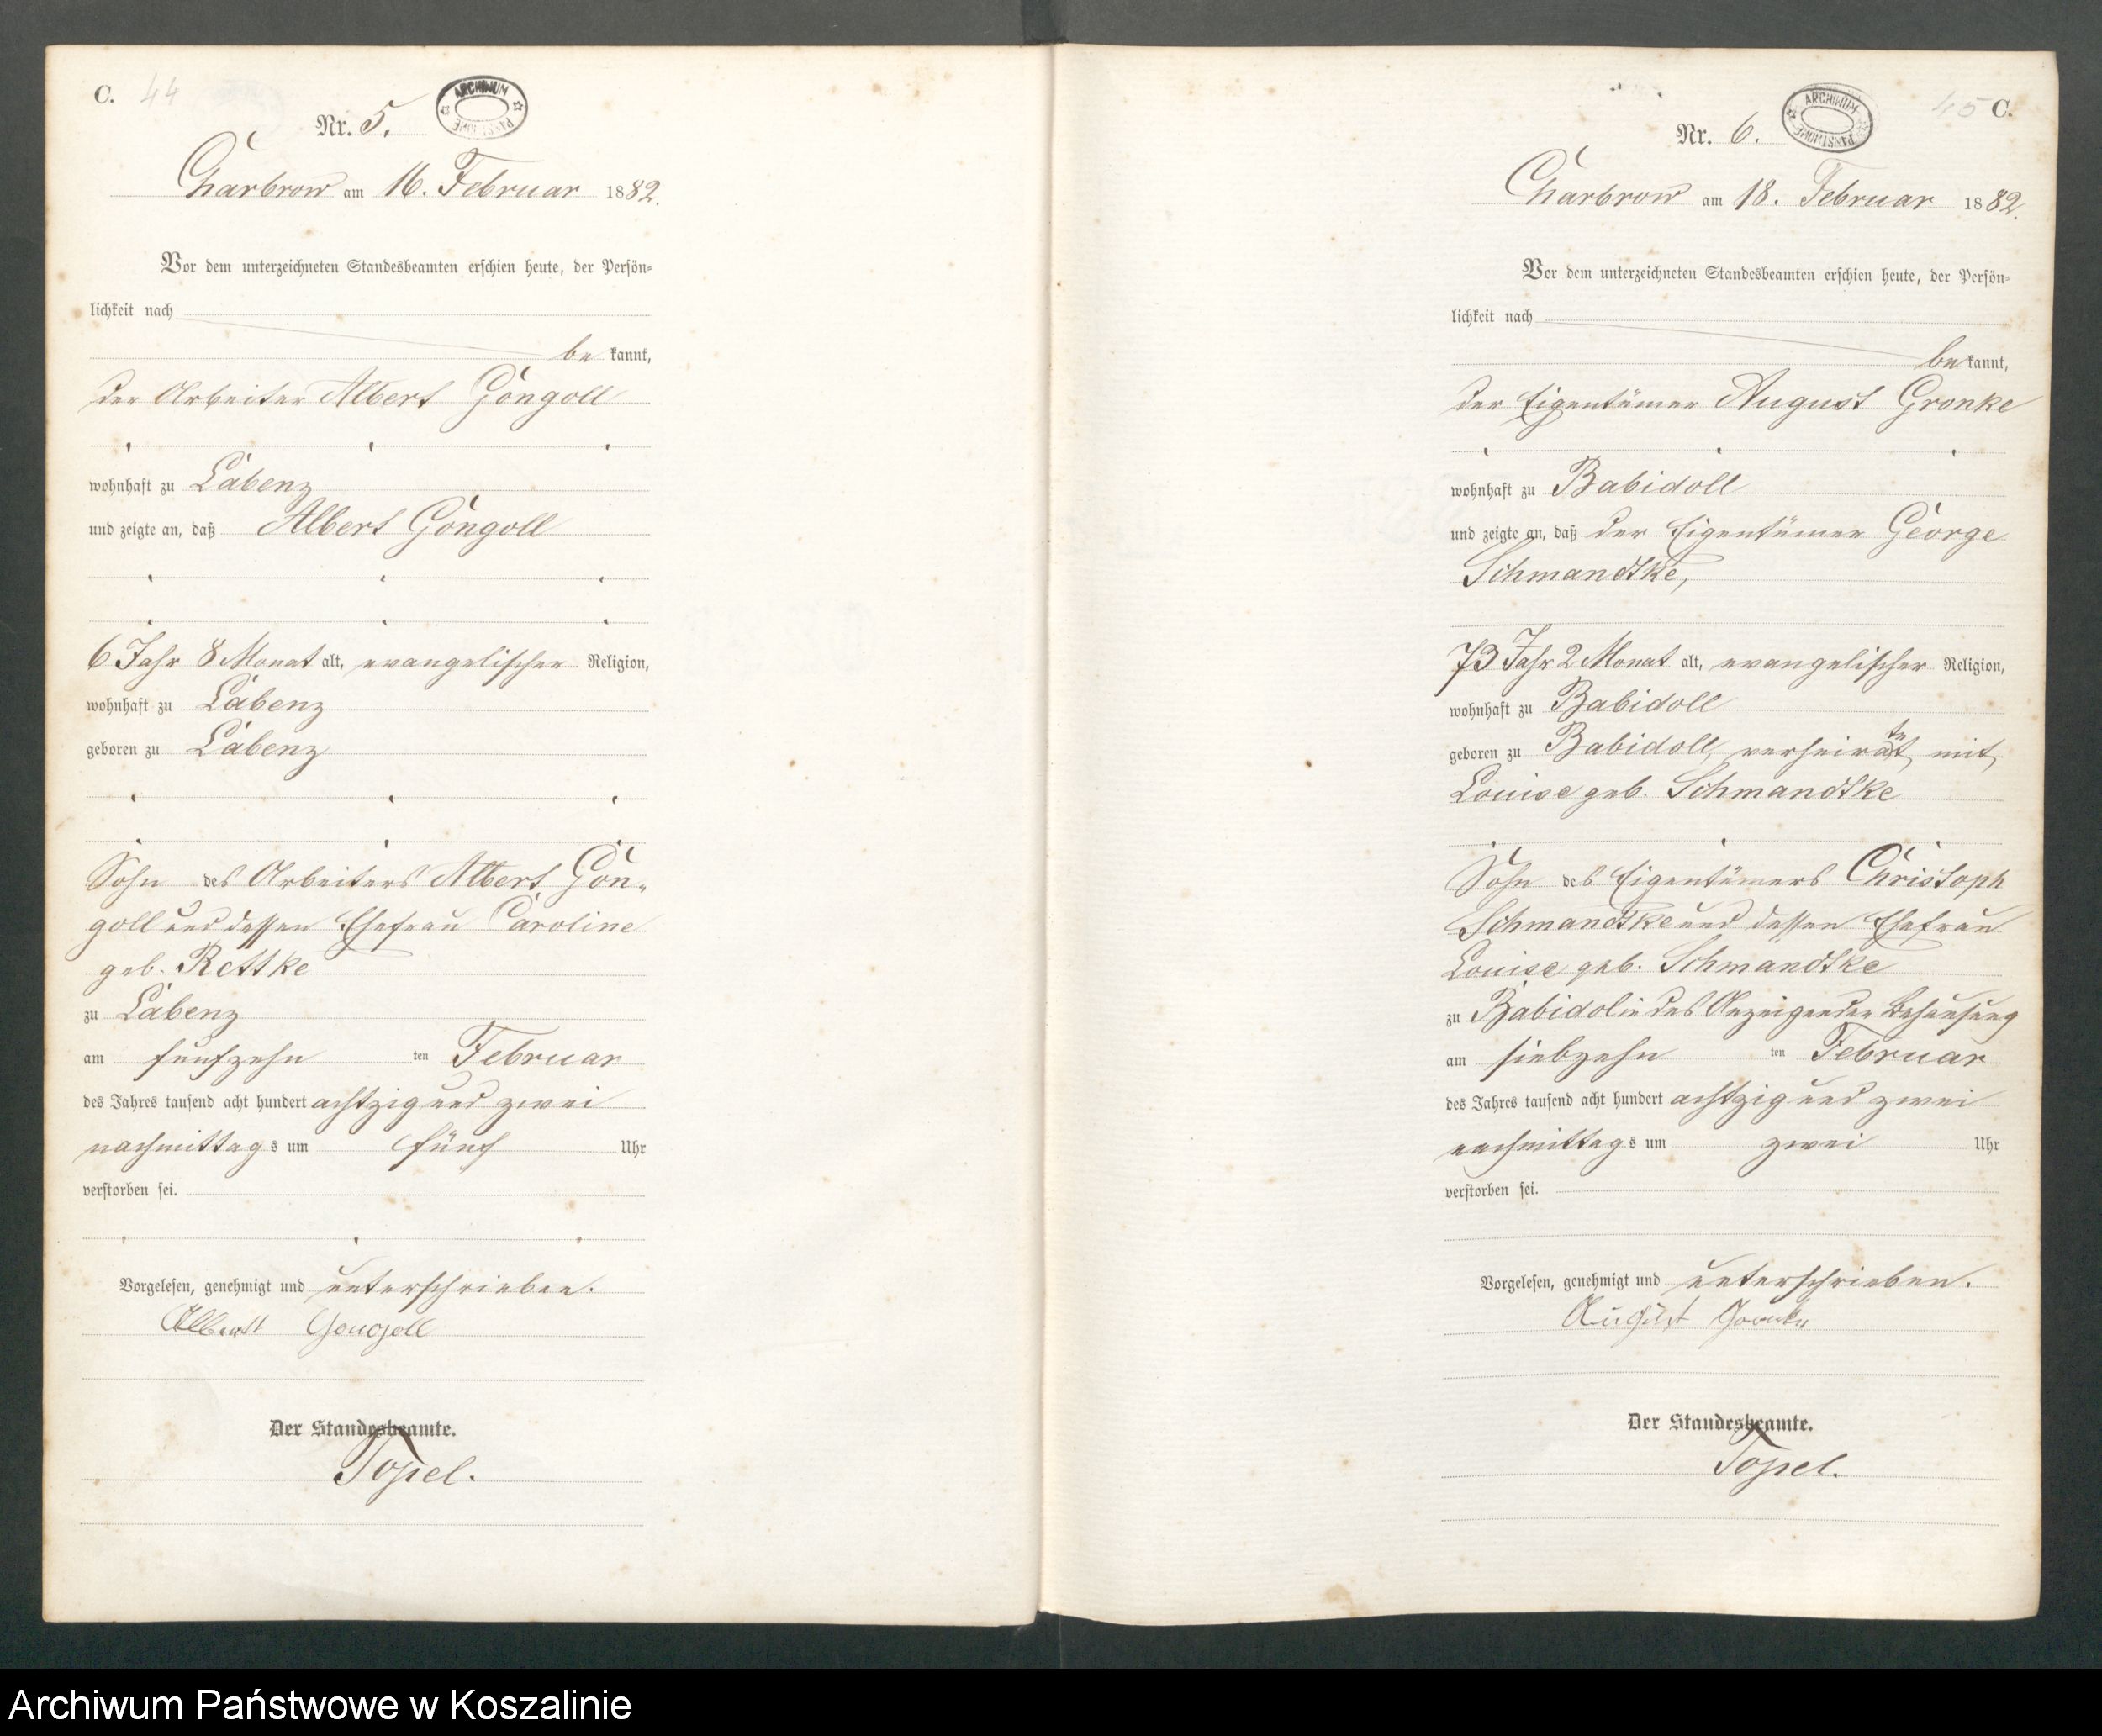 C. 44
Nr. 5.
ARCHIWUM PAŃSTWOWE
Charbrow am 16. Februar 1882.
Vor dem unterzeichneten Standesbeamten erschien heute, der Persön=
lichkeit nach
be kannt,
der Arbeiter Albert Gongoll
wohnhaft zu Labenz
und zeigte an, daß Albert Gongoll
6 Jahr 8 Monat alt, evangelischer Religion,
wohnhaft zu Labenz
geboren zu Labenz
Sohn des Arbeiters Albert Gon-
goll und dessen Ehefrau Caroline
geb. Rettke
zu Labenz
am fünfzehn ten Februar
des Jahres tausend acht hundert achtzig und zwei
nachmittags um fünf Uhr
verstorben sei.
Vorgelesen, genehmigt und unterschrieben.
Albert Gongoll
Der Standesbeamte.
Topel.
45 C.
Nr. 6.
ARCHIWUM PAŃSTWOWE
Charbrow am 18. Februar 1882.
Vor dem unterzeichneten Standesbeamten erschien heute, der Persön=
lichkeit nach
be kannt,
der Eigentümer August Gronke
wohnhaft zu Babidoll
und zeigte an, daß der Eigentümer George
Schmandtke,
73 Jahr 2 Monat alt, evangelischer Religion,
wohnhaft zu Babidoll
geboren zu Babidoll, verheiratet mit
Louise geb. Schmandtke
Sohn des Eigentümers Christoph
Schmandtke und dessen Ehefrau
Louise geb. Schmandtke
zu Babidol in des Anzeigenden Behausung
am siebzehn ten Februar
des Jahres tausend acht hundert achtzig und zwei
nachmittags um zwei Uhr
verstorben sei.
Vorgelesen, genehmigt und unterschrieben.
August Gronke
Der Standesbeamte.
Topel.
Archiwum Państwowe w Koszalinie